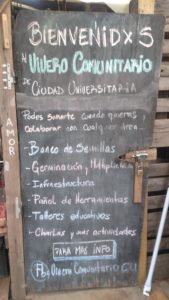 BIENVENIDXS
al VIVERO COMUNITARIO
DE CIUDAD UNIVERSITARIA
Podes sumarte cuando quieras y
colaborar con cualquier área...
- Banco de Semillas
- Germinación y Multiplicación
- Infraestructura
- Pañol de Herramientas
- Talleres educativos
- Charlas y más actividades
PARA MAS INFO
Fb: Vivero Comunitario CU
AMOR